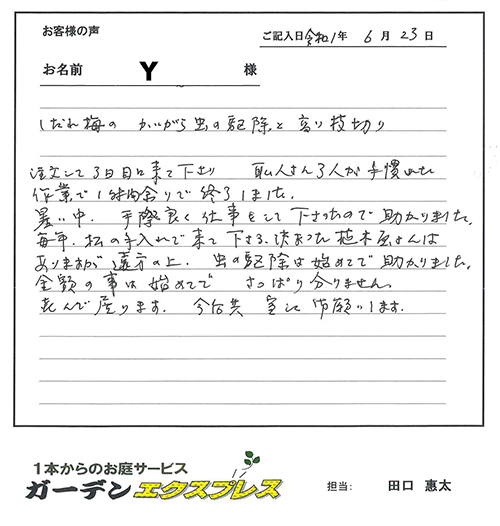 お客様の声
ご記入日 令和1年 6月 23日
お名前 Y 様
しだれ梅の かいがら虫の駆除と 剪り枝切り
注文して3日目に来て下さり 職人さん3人が手慣れた
作業で1時間余りで終了しました。
暑い中、手際良く仕事をして下さったので助かりました。
毎年、松の手入れで来て下さる、決まった植木屋さんは
ありますが遠方の上、虫の駆除は始めてで助かりました。
金額の事は始めてで さっぱり分りません。
喜んで居ります。 今后共 宜しく御願いします。
1本からのお庭サービス
ガーデンエクスプレス
担当: 田口 惠太